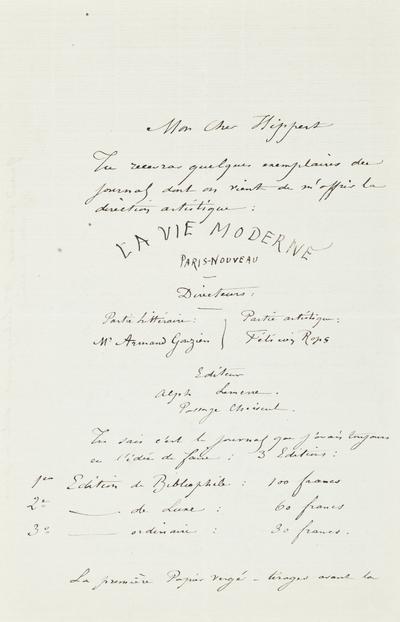 Mon Cher Hippert
Tu recevras quelques exemplaires du
journal dont on vient de m'offrir la
direction artistique :
LA VIE MODERNE
PARIS-NOUVEAU
Directeurs :
Partie littéraire : Partie artistique :
Mr Armand Gouzien } Félicien Rops
Editeur
Alph Lemerre.
Passage Choiseul.
Tu sais c'est le journal que j'avais toujours
eu l'idée de faire : 3 Editions :
1ere Edition de Bibliophile : 100 francs
2e — de Luxe : 60 francs
3e — ordinaire : 30 francs.
La première Papier vergé – tirages avant la